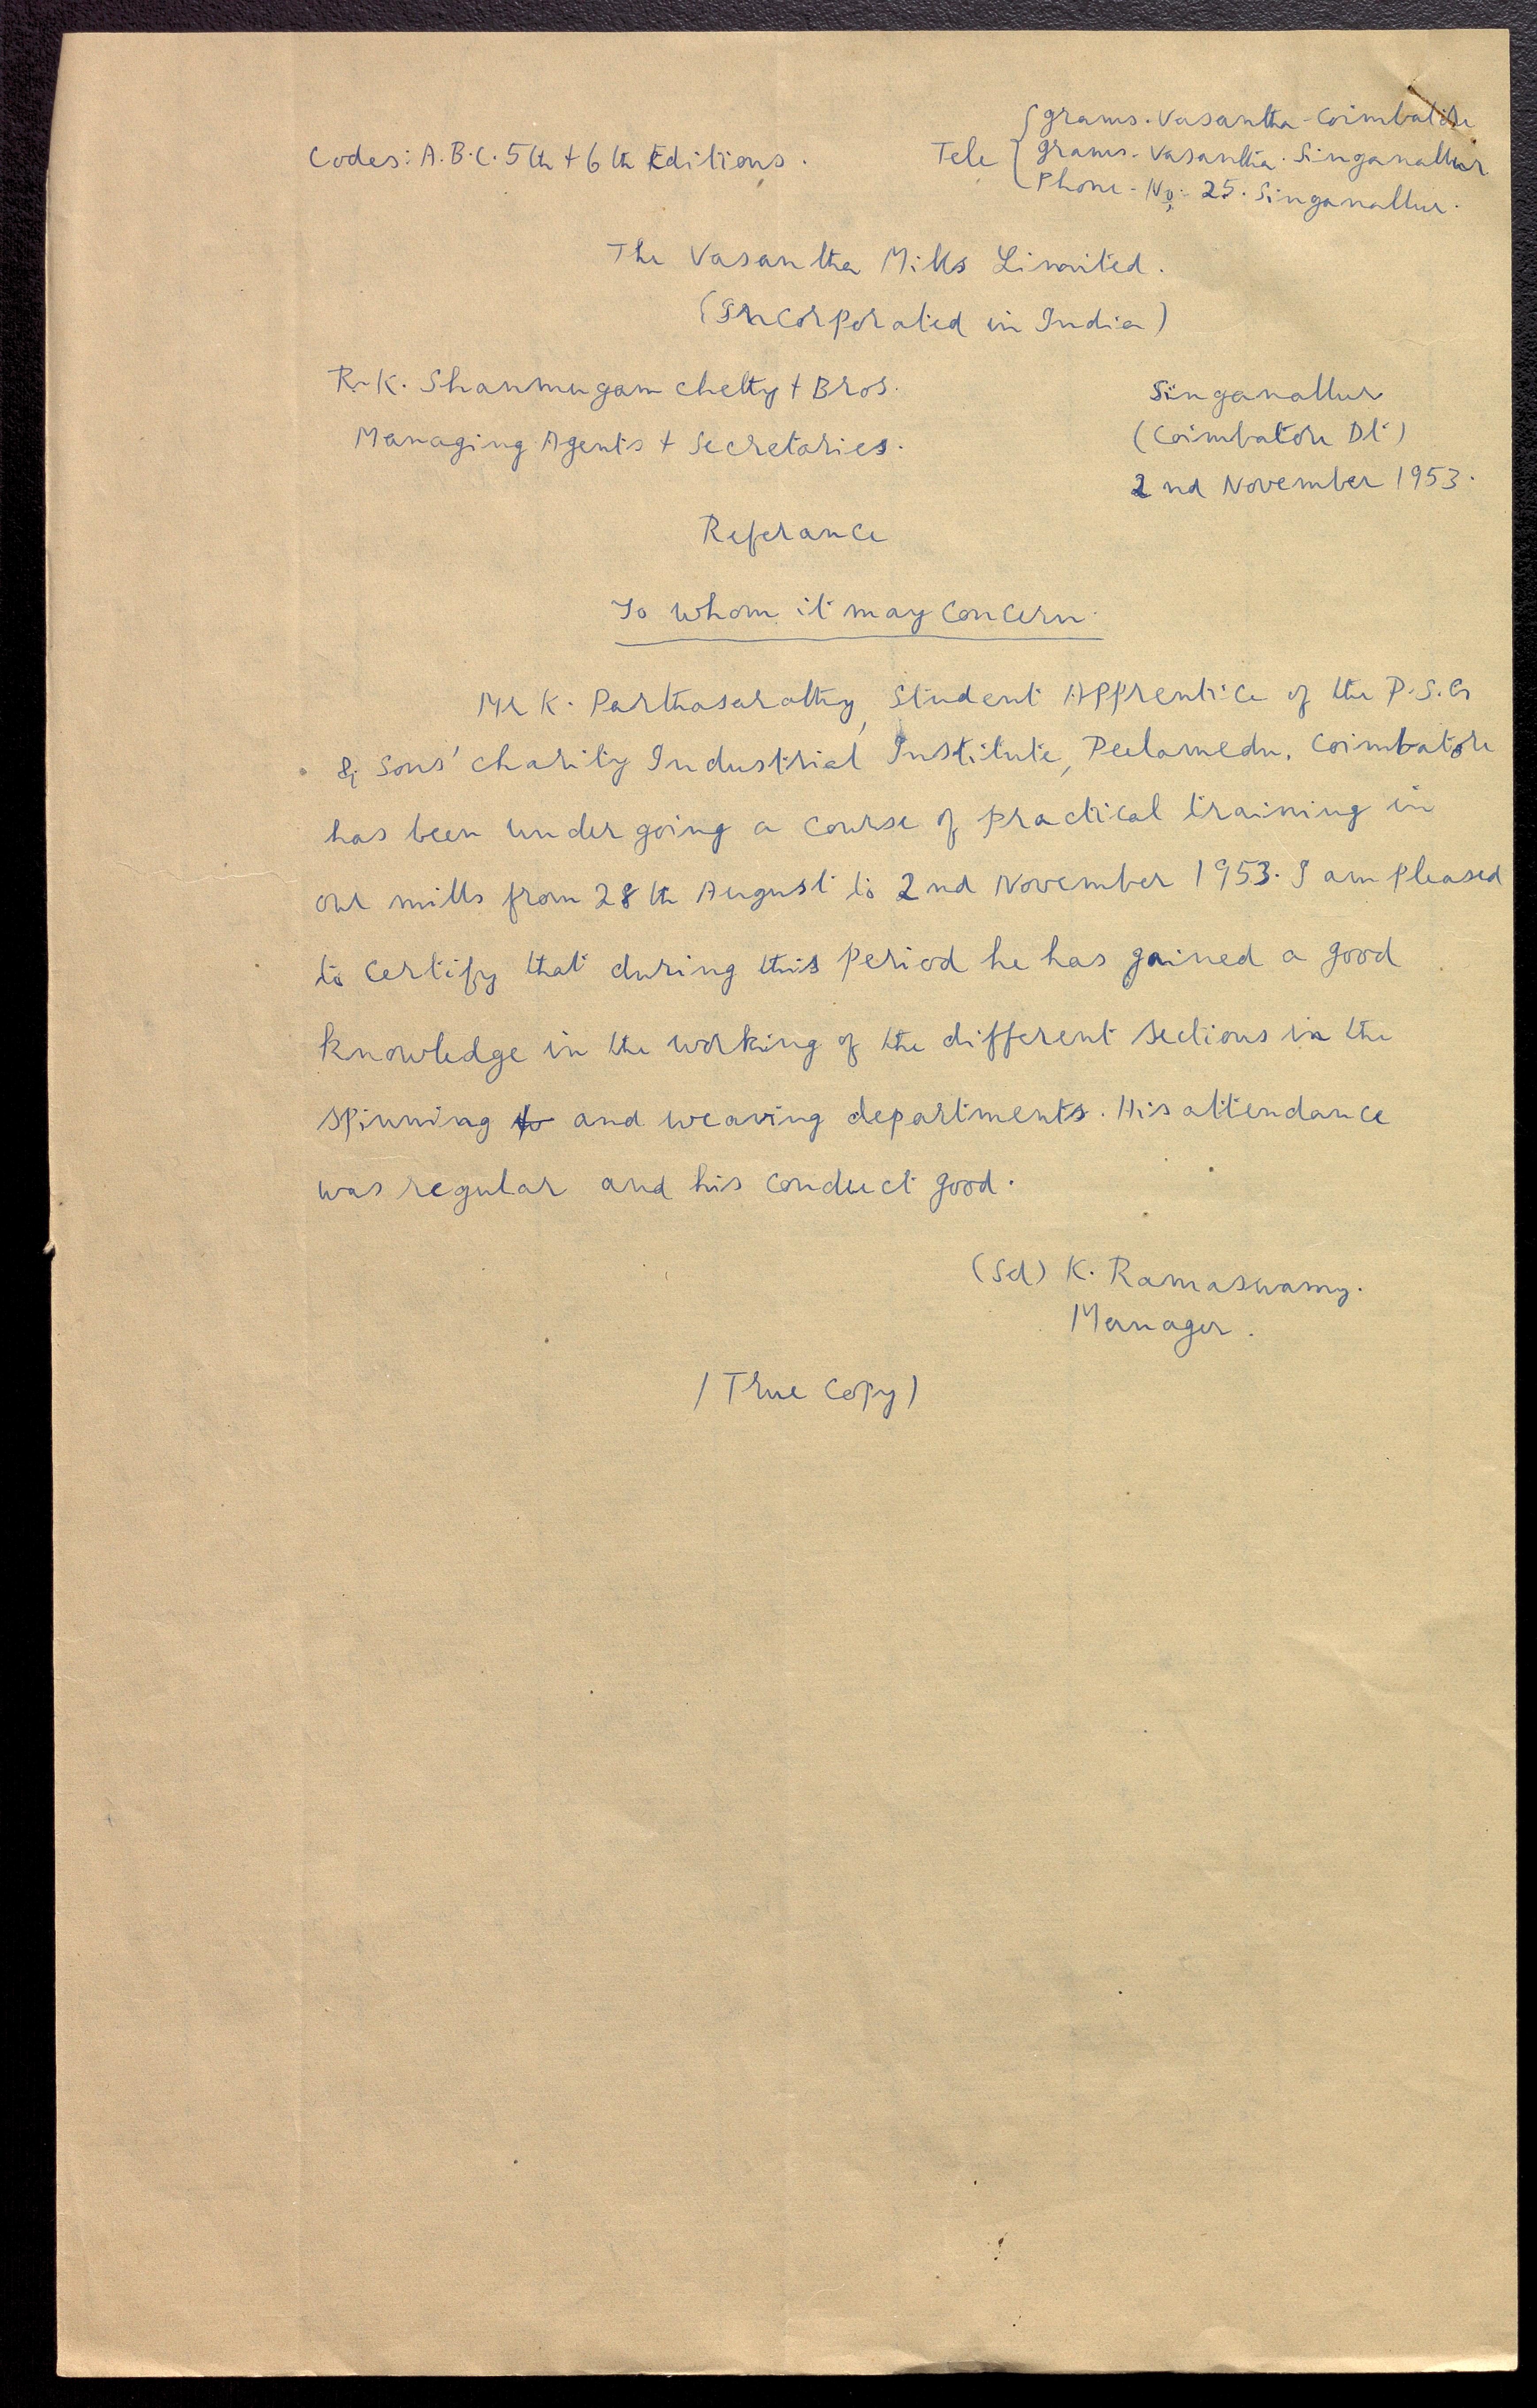 Codes: A.B.C. 5th + 6th Editions.
Tele { grams. Vasantha - Coimbatore
grams - Vasantha. Singanallur
Phone - No: 25. Singanallur.
The Vasantha Mills Limited.
(Incorporated in India)
R.K. Shanmugam chetty + Bros.
Managing Agents + Secretaries.
Singanallur
(Coimbatore Dt)
2nd November 1953.
Referance
To whom it may concern.
Mr K. Parthasarathy, Student Apprentice of the P.S.G
& Sons' charity Industrial Institute, Peelamedu, Coimbatore
has been undergoing a course of practical training in
our mills from 28th August to 2nd November 1953. I am pleased
to certify that during this period he has gained a good
knowledge in the working of the different sections in the
spinning and weaving departments. His attendance
was regular and his conduct good.
(Sd) K. Ramaswamy.
Manager.
(True Copy)